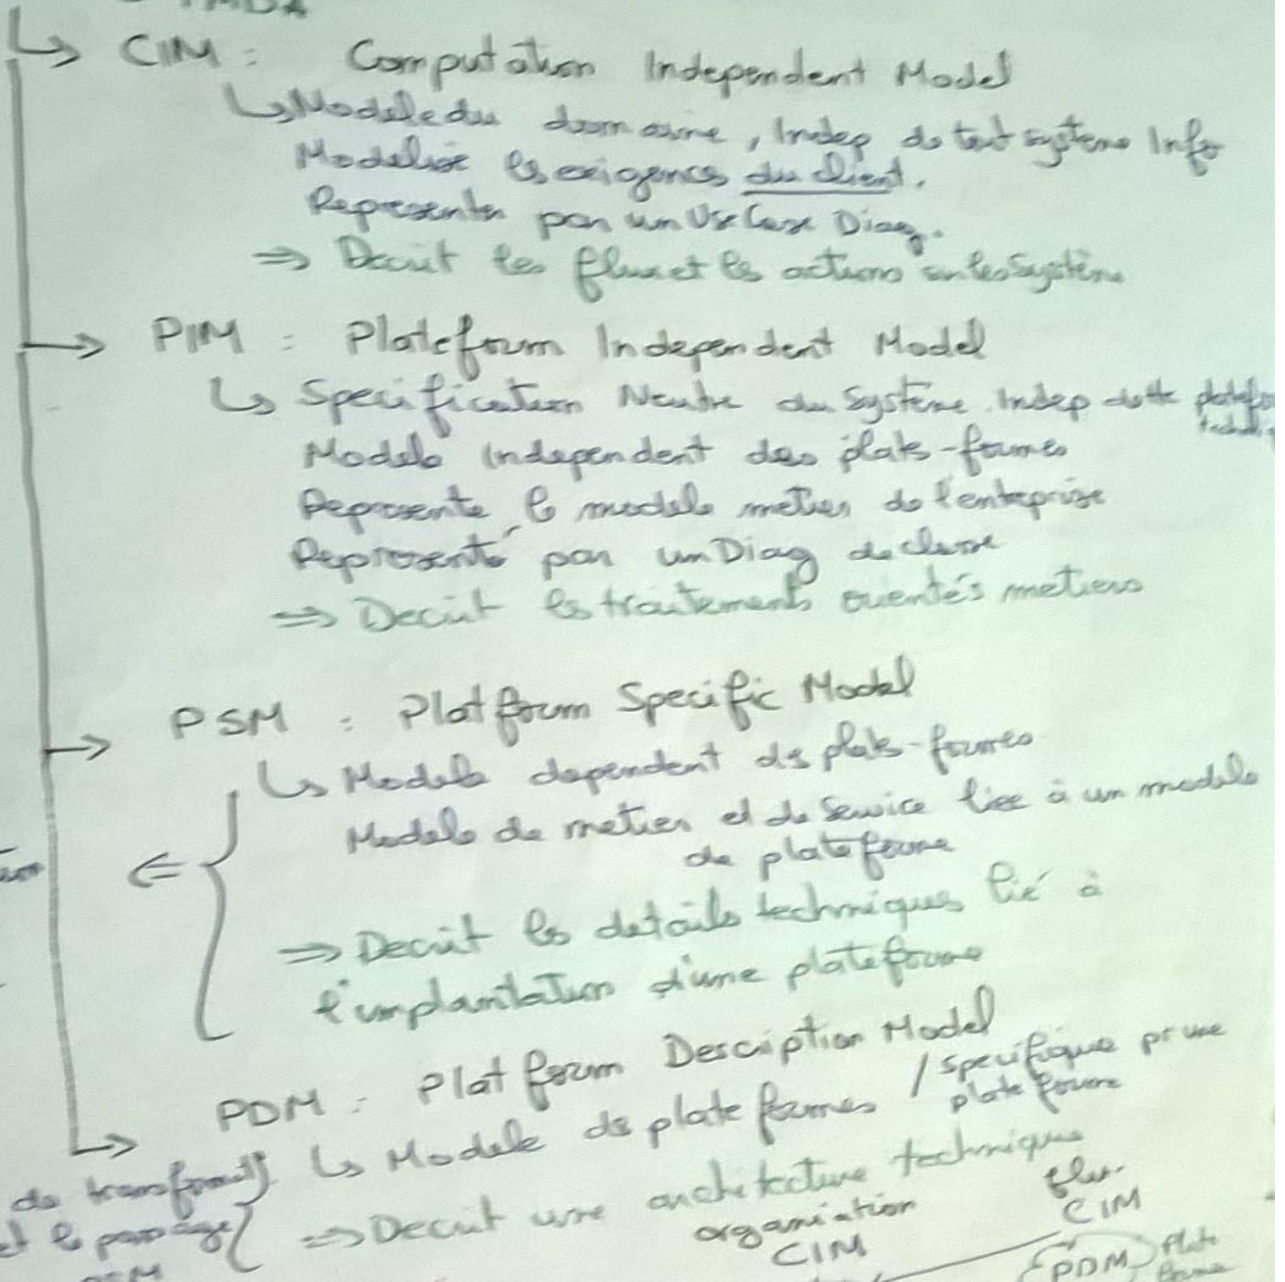 MDA
↳ CIM : Computation Independent Model
↳ Modele du domaine, Indep de tout système Info
Modelise les exigences du client.
Representer par un Use Case Diag.
⇒ Decrit les flux et les actions sur les Système
→ PIM : Plateform Independent Model
↳ Specification Neutre du Système. Indep de tte platefo
Modele Independent des plate-formes
Represente le modele metier de l'entreprise
Representé par un Diag de classe
⇒ Decrit les traitements orientés metiers
→ PSM : Platform Specific Model
↳ Modele dependent des plate-formes
Modele de metier et de Service liee à un modele
de plateforme
⇐ {
⇒ Decrit les details techniques lié à
l'implantation d'une plateforme
↳ PDM : Platform Description Model
↳ Modele des plateformes / specifique pr une
plateforme
⇒ Decrit une architecture technique
de transformat°
et le passage
PSM
organisation
CIM
flux
CIM
PDM
Plate
forme